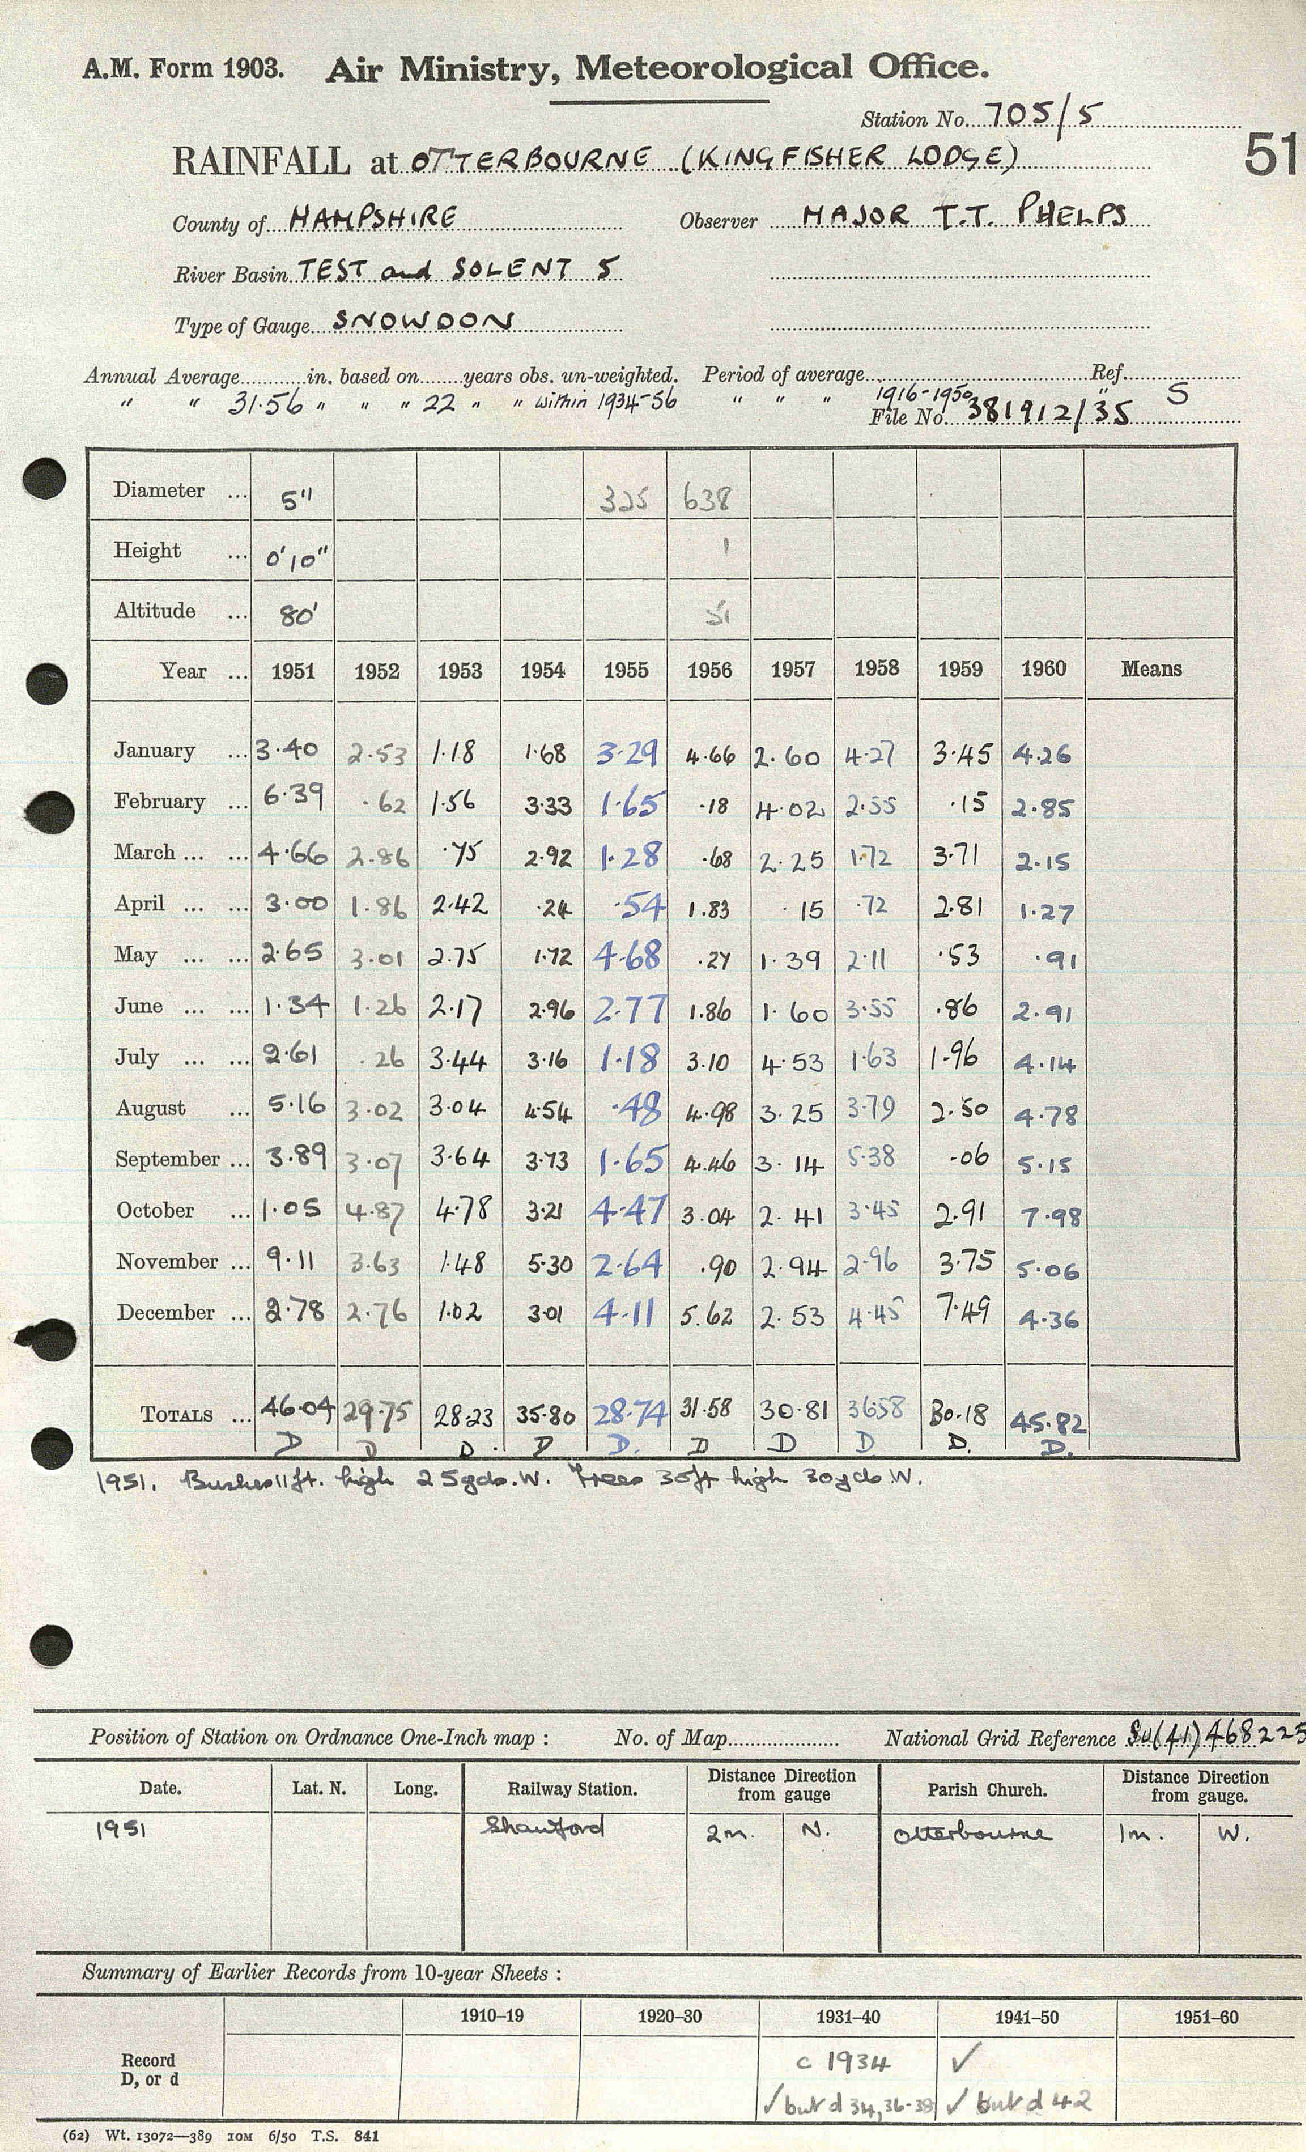 A.M. Form 1903. Air Ministry, Meteorological Office.
Station No. 705/5
RAINFALL at OTTERBOURNE (KINGFISHER LODGE)
51
County of HAMPSHIRE Observer MAJOR T.T. PHELPS
River Basin TEST and SOLENT 5
Type of Gauge SNOWDON
Annual Average in. based on years obs. un-weighted. Period of average Ref.
" " 31.56 " " " 22 " " within 1934-56 " " " 1916-1950 S
File No. 381912/35
Diameter ... 5" 325 638
Height ... 0'10" 1
Altitude ... 80' 51
Year ... 1951 1952 1953 1954 1955 1956 1957 1958 1959 1960 Means
January ... 3.40 2.53 1.18 1.68 3.29 4.66 2.60 4.27 3.45 4.26
February ... 6.39 .62 1.56 3.33 1.65 .18 4.02 2.55 .15 2.85
March ... ... 4.66 2.86 .75 2.92 1.28 .68 2.25 1.72 3.71 2.15
April ... ... 3.00 1.86 2.42 .24 .54 1.83 .15 .72 2.81 1.27
May ... ... 2.65 3.01 2.75 1.72 4.68 .27 1.39 2.11 .53 .91
June ... ... 1.34 1.26 2.17 2.96 2.77 1.86 1.60 3.55 .86 2.91
July ... ... 2.61 .26 3.44 3.16 1.18 3.10 4.53 1.63 1.96 4.14
August ... 5.16 3.02 3.04 4.54 .48 4.98 3.25 3.79 2.50 4.78
September ... 3.89 3.07 3.64 3.73 1.65 4.46 3.14 5.38 .06 5.15
October ... 1.05 4.87 4.78 3.21 4.47 3.04 2.41 3.45 2.91 7.98
November ... 9.11 3.63 1.48 5.30 2.64 .90 2.94 2.96 3.75 5.06
December ... 2.78 2.76 1.02 3.01 4.11 5.62 2.53 4.45 7.49 4.36
TOTALS ... 46.04 29.75 28.23 35.80 28.74 31.58 30.81 36.58 30.18 45.82
D D D. D D. D D D D. D.
1951. Bushes 11ft. high 25yds.W. Trees 35ft high 30yds.W.
Position of Station on Ordnance One-Inch map : No. of Map National Grid Reference SU(41)468225
Date. Lat. N. Long. Railway Station. Distance from gauge Direction Parish Church. Distance from gauge. Direction
1951 Shawford 2m. N. Otterbourne 1m. W.
Summary of Earlier Records from 10-year Sheets :
1910–19 1920–30 1931–40 1941–50 1951–60
Record D, or d c 1934 ✓
✓ but d 34, 36-38 ✓ but d 42
(62) Wt. 13072—389 10M 6/50 T.S. 841